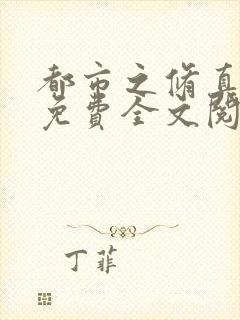 都市之修真
免費全文閱
丁菲